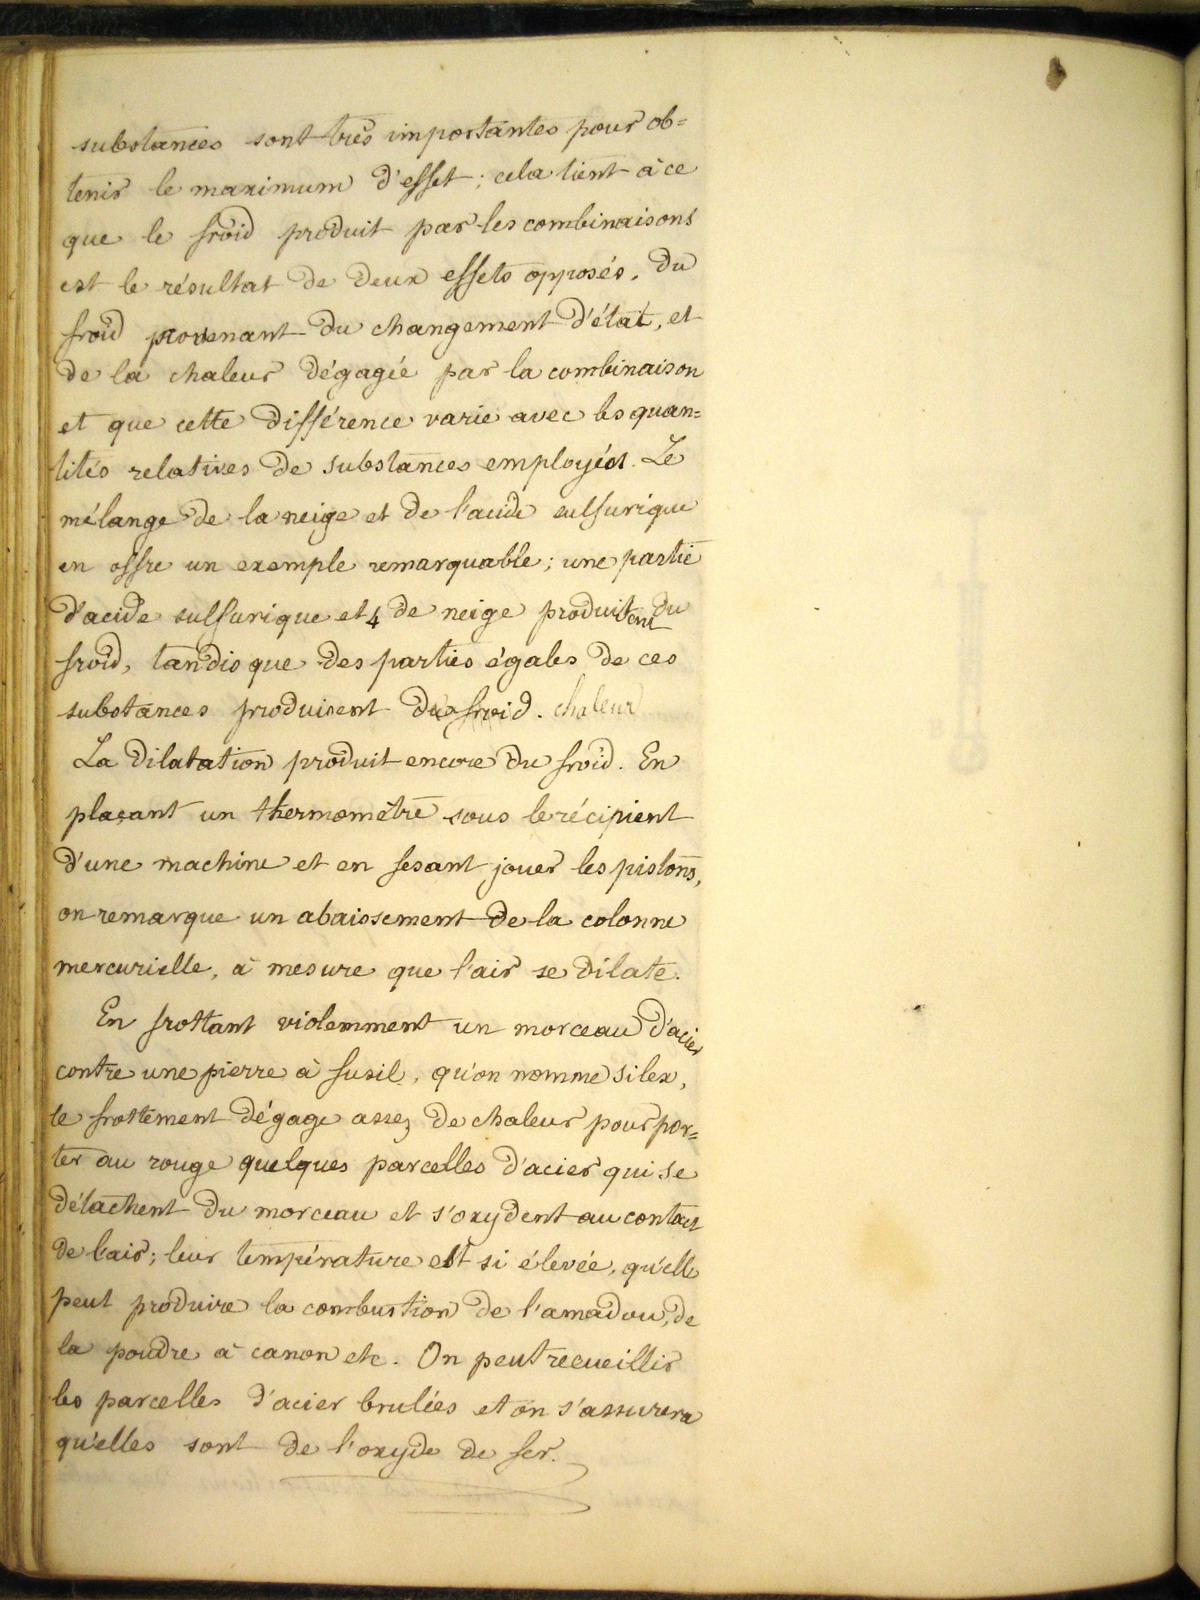 substances sont très importantes pour ob=
tenir le maximum d'effet ; cela tient à ce
que le froid produit par les combinaisons
est le résultat de deux effets opposés, du
froid provenant du changement d'état, et
de la chaleur dégagée par la combinaison
et que cette différence varie avec les quan=
tités relatives de substances employées. Le
mélange de la neige et de l'acide sulfurique
en offre un exemple remarquable ; une partie
d'acide sulfurique et 4 de neige produisent du
froid, tandis que des parties égales de ces
substances produisent du froid. chaleur
La dilatation produit encore du froid. En
plaçant un thermomètre sous le récipient
d'une machine et en fesant jouer les pistons,
on remarque un abaissement de la colonne
mercurielle, à mesure que l'air se dilate.
En frottant violemment un morceau d'acier
contre une pierre à fusil, qu'on nomme silex,
le frottement dégage assez de chaleur pour por=
ter au rouge quelques parcelles d'acier qui se
détachent du morceau et s'oxydent au contact
de l'air ; leur température est si élevée, qu'elle
peut produire la combustion de l'amadou, de
la poudre à canon etc. On peut recueillir
les parcelles d'acier brulées et on s'assurera
qu'elles sont de l'oxyde de fer.